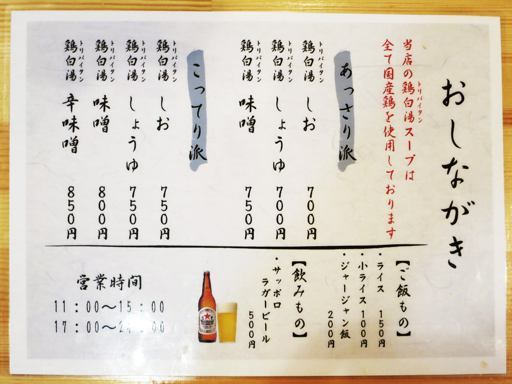 おしながき
当店の鶏白湯スープは
トリパイタン
全て国産鶏を使用しております
あっさり派
鶏白湯 しお 700円
トリパイタン
鶏白湯 しょうゆ 700円
トリパイタン
鶏白湯 味噌 750円
トリパイタン
こってり派
鶏白湯 しお 750円
トリパイタン
鶏白湯 しょうゆ 750円
トリパイタン
鶏白湯 味噌 800円
トリパイタン
鶏白湯 辛味噌 850円
トリパイタン
【ご飯もの】
・ライス 150円
・小ライス 100円
・ジャージャン飯
200円
【飲みもの】
・サッポロ
ラガービール
500円
営業時間
11:00〜15:00
17:00〜24:00